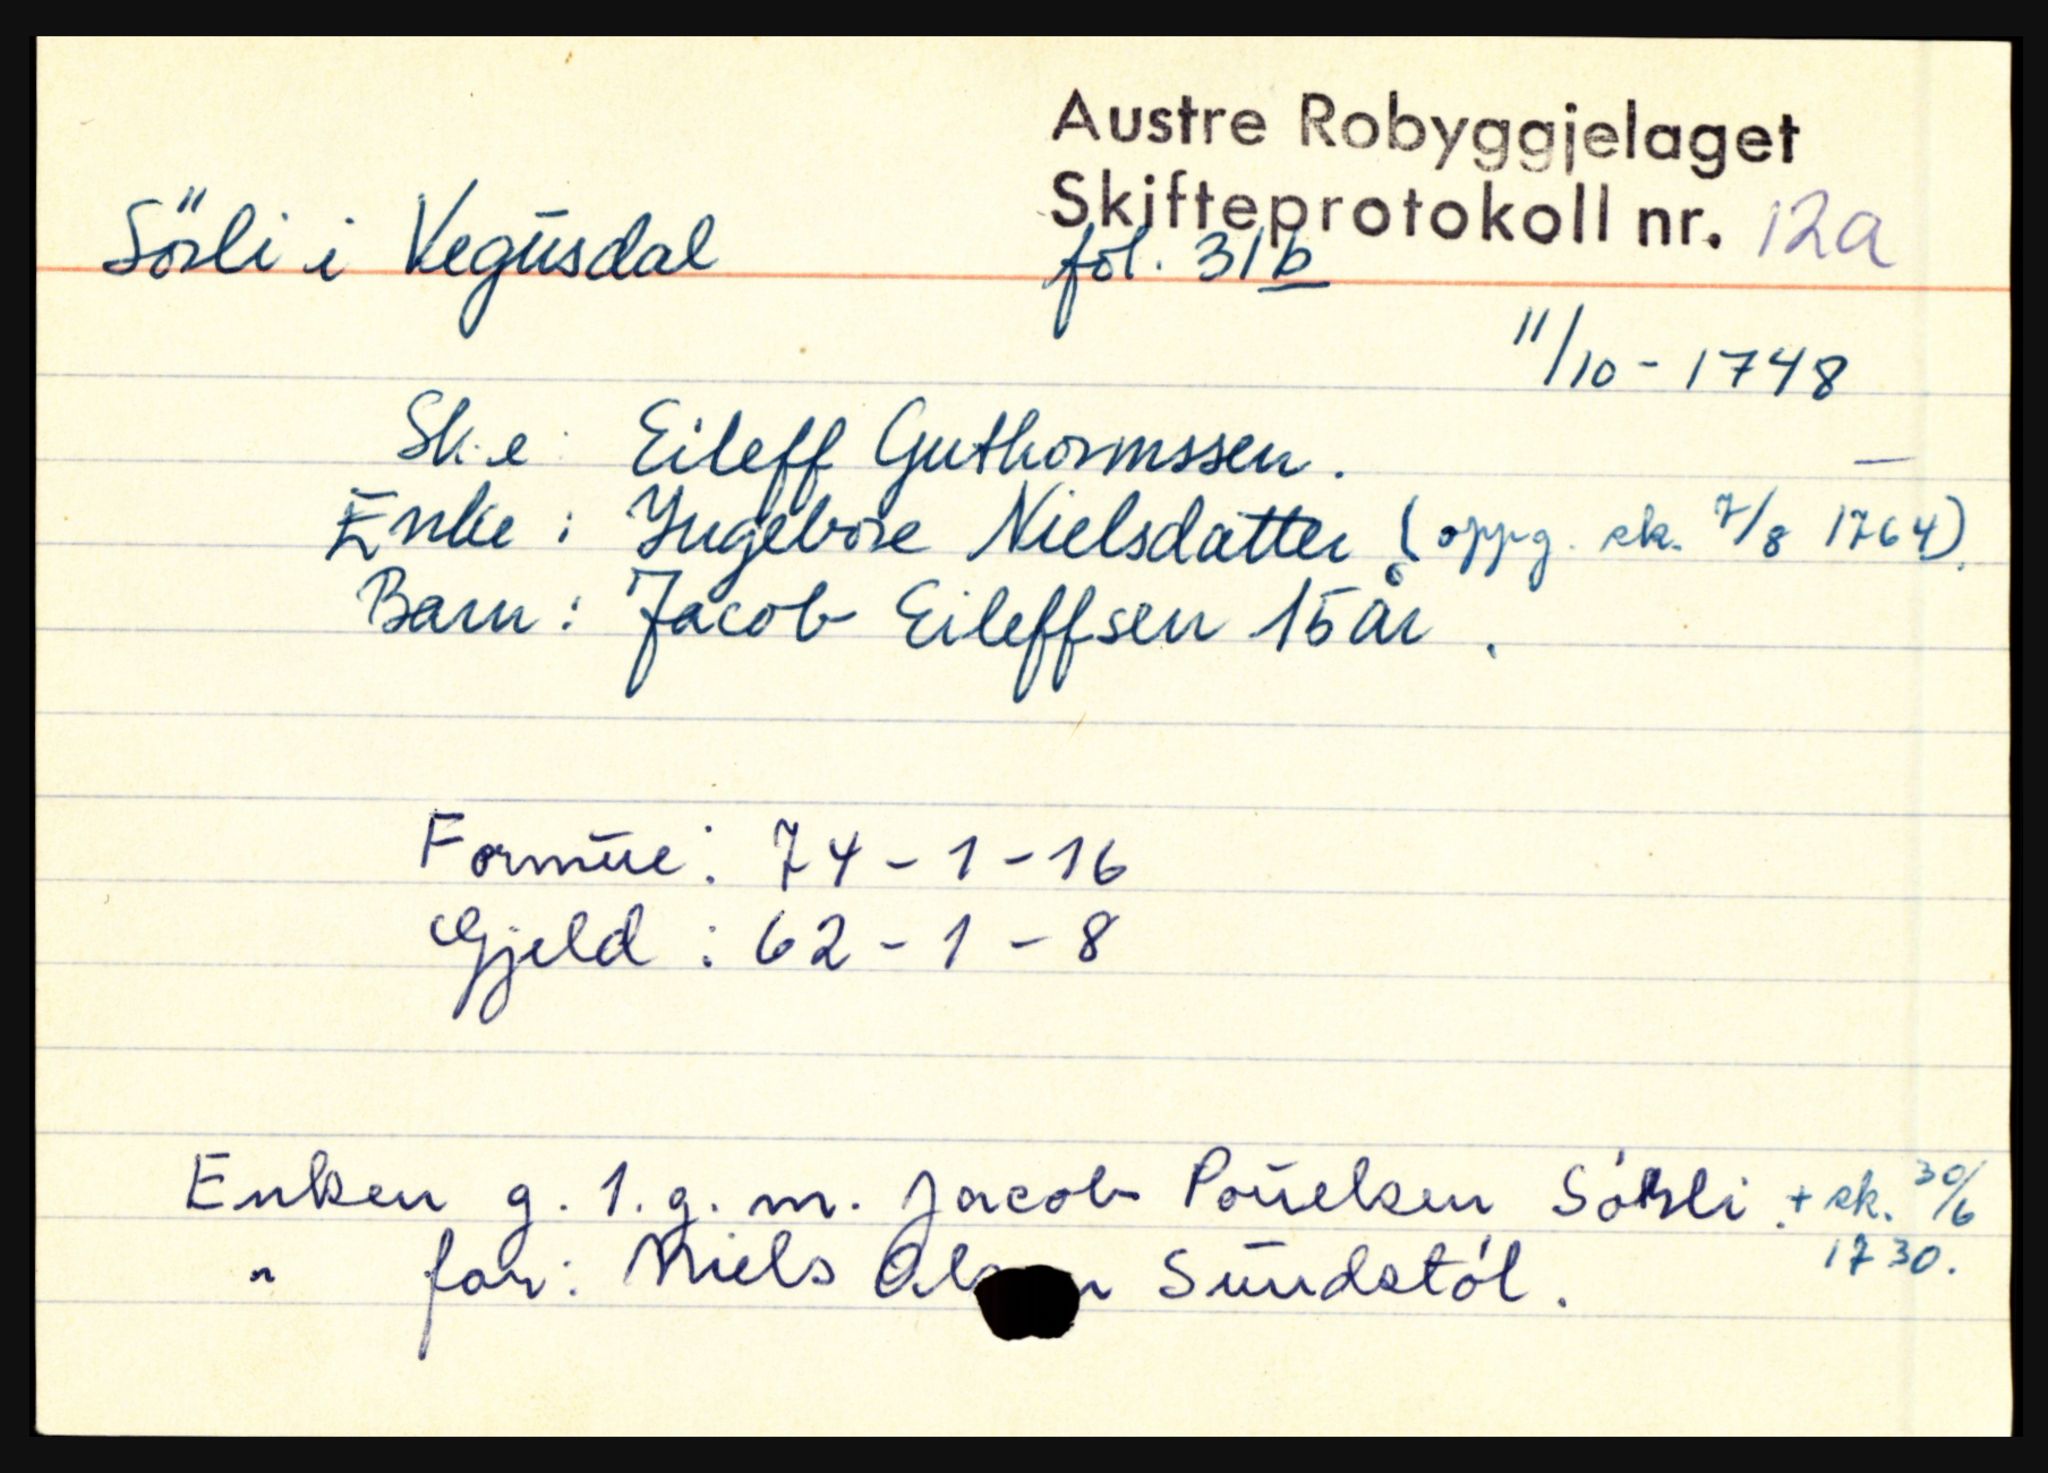 Austre Robyggjelaget
Skifteprotokoll nr. 12a
Sörli i Vegusdal fol. 31b
11/10 - 1748
Sk. e: Eileff Guthormssen.
Enke: Yngebore Nielsdatter (oppg. sk. 7/8 1764).
Barn: Jacob Eileffsen 15 år.
Formue: 74 - 1 - 16
Gjeld: 62 - 1 - 8
Enken g. 1. g. m. Jacob Pouelsen Sörli. + sk. 30/6
1730.
" far: Niels Sundstöl.